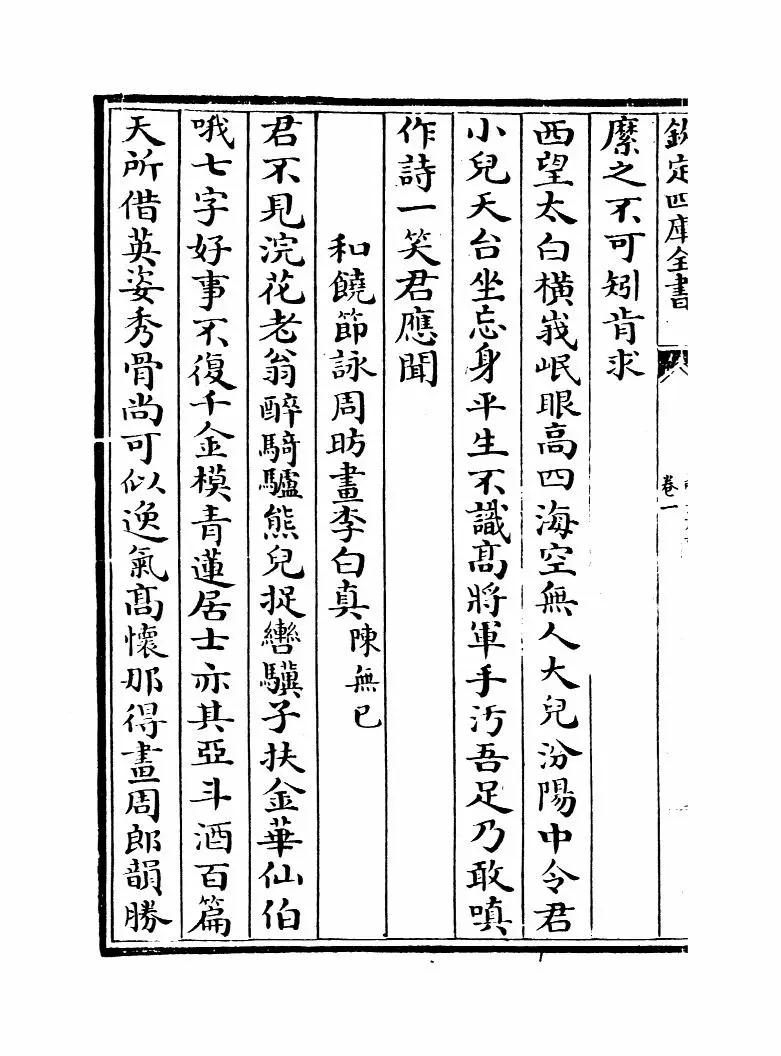 欽定四庫全書
卷一
縻之不可矧肯求
西望太白橫峩岷眼高四海空無人大兒汾陽中令君
小兒天台坐忘身平生不識髙將軍手汚吾足乃敢嗔
作詩一笑君應聞
和饒節詠周昉畫李白真 陳無已
君不見浣花老翁醉騎驢熊兒捉轡驥子扶金華仙伯
哦七字好事不復千金模青蓮居士亦其亞斗酒百篇
天所借英姿秀骨尚可似逸氣髙懷那得畫周郎韻勝